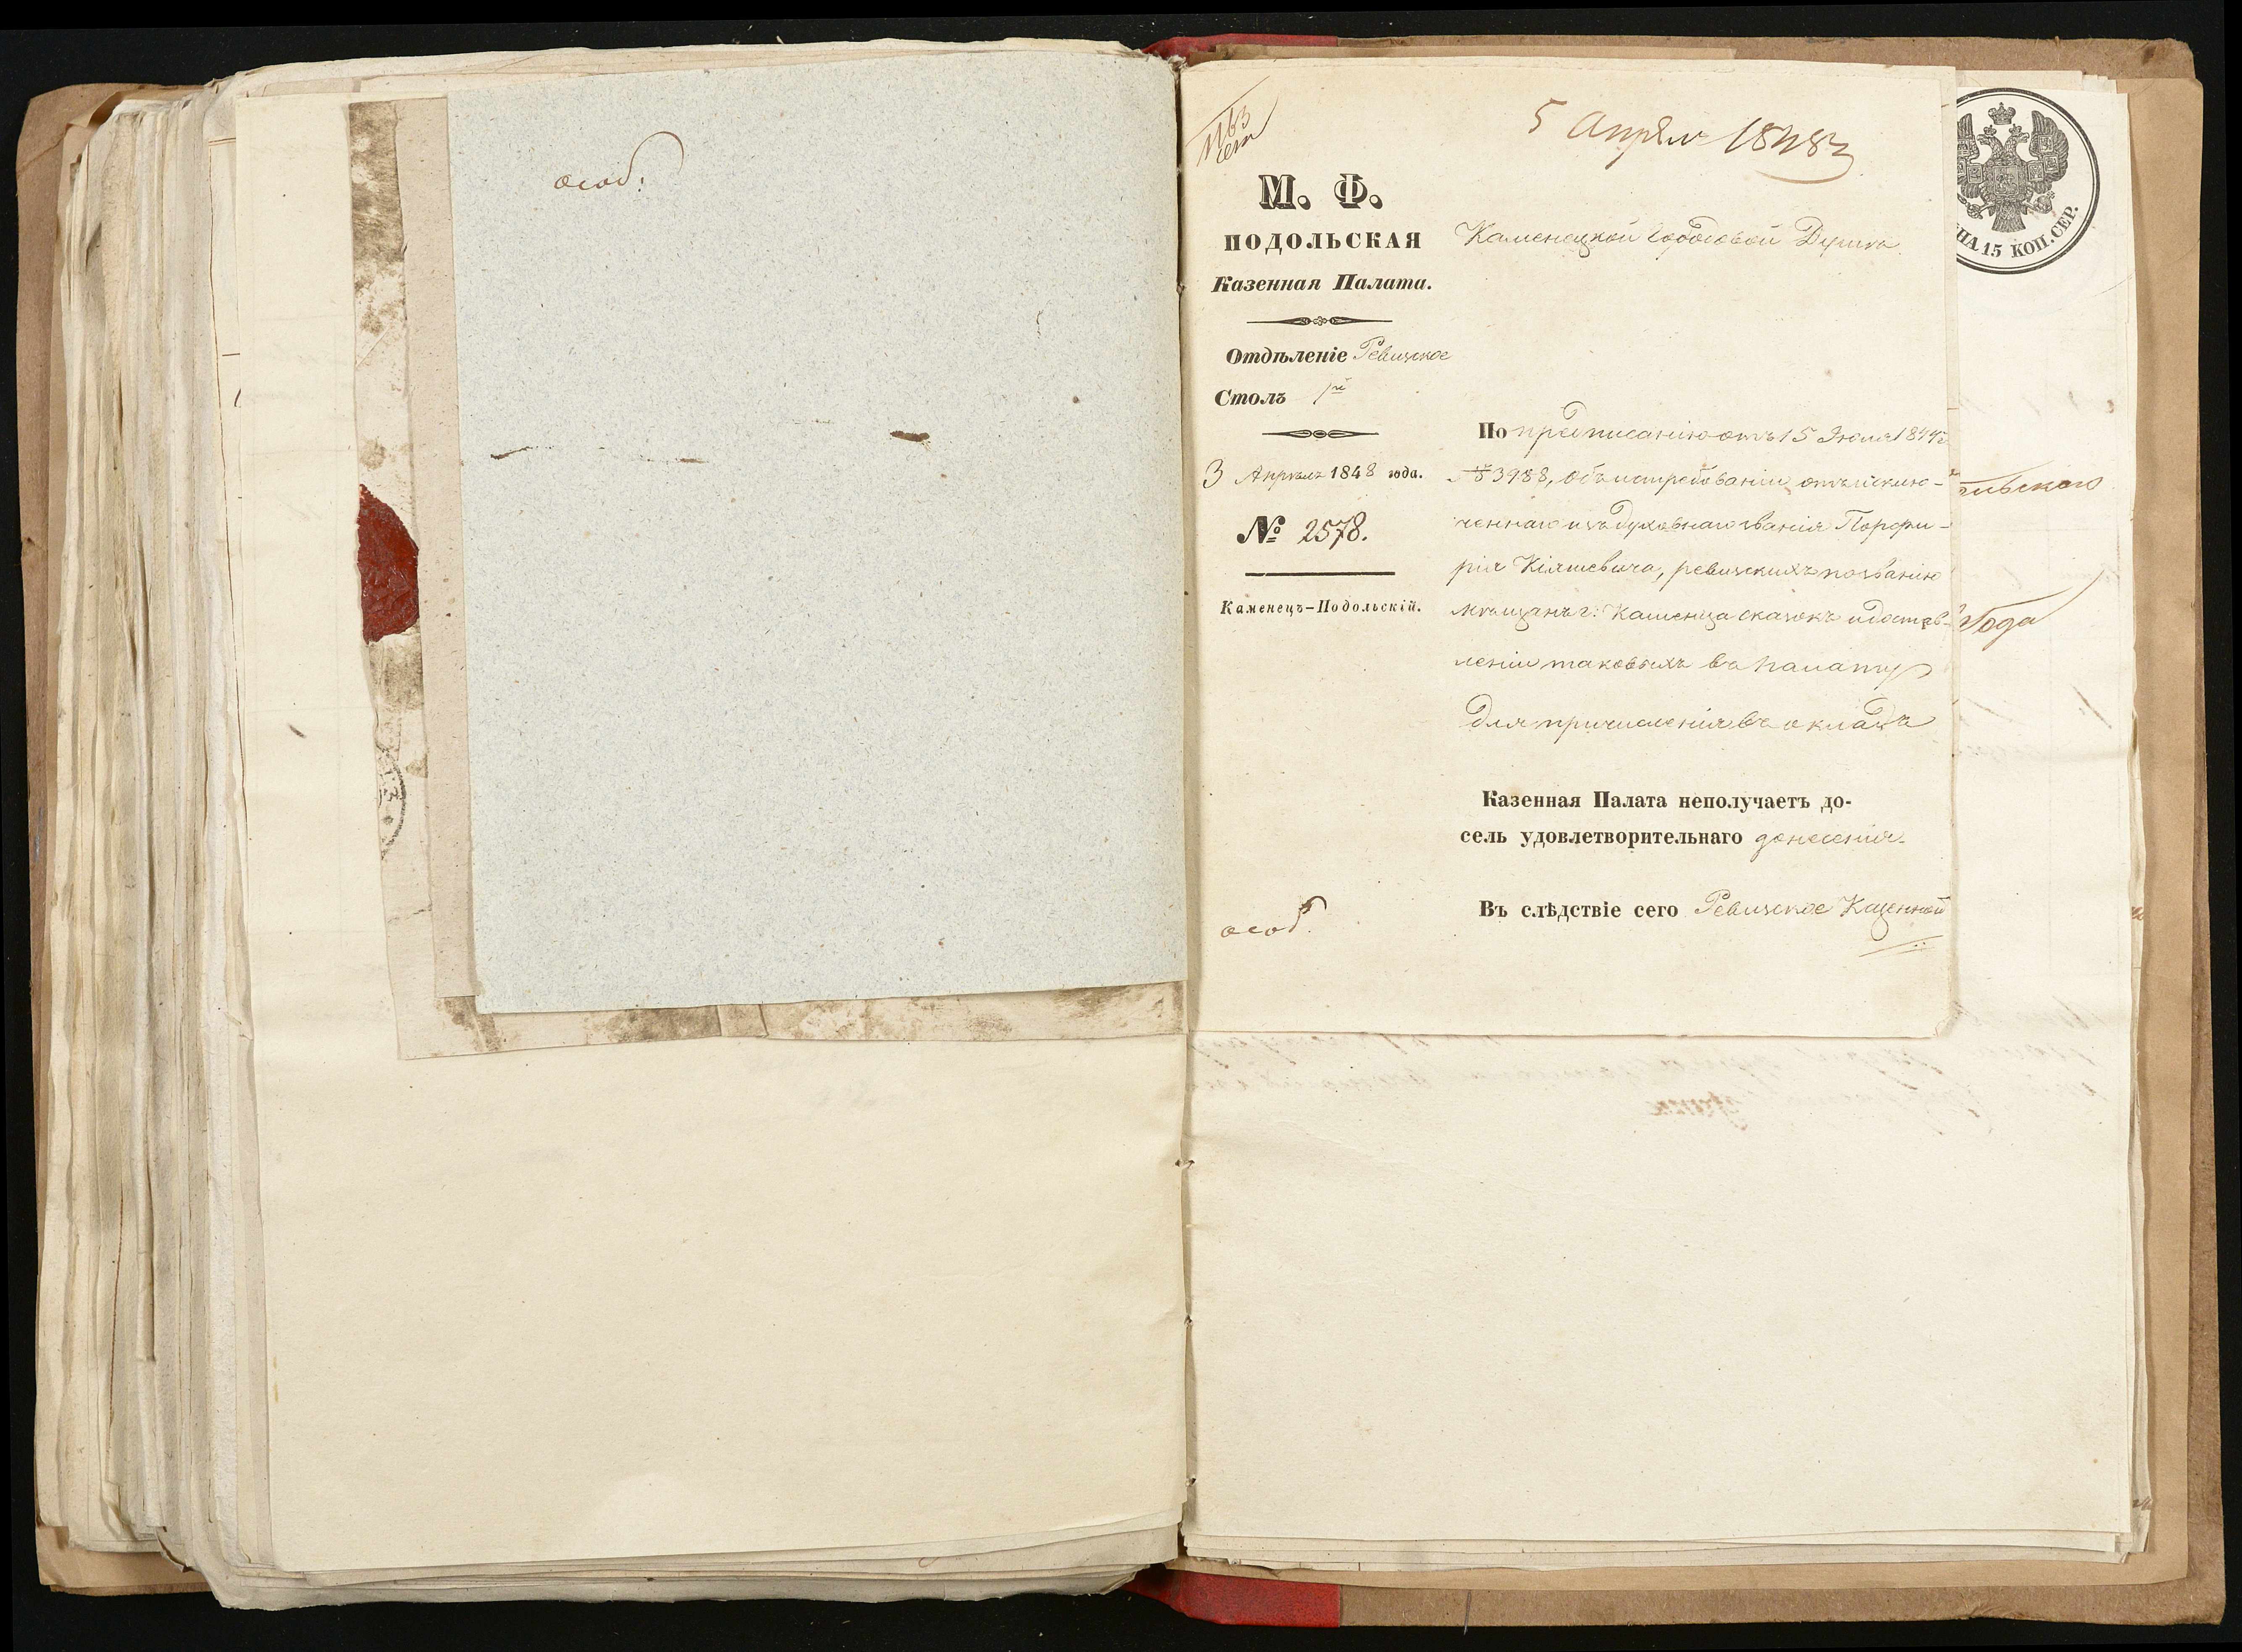 особ:
1163
5 Апреля 1848 г
М. Ф.
ПОДОЛЬСКАЯ
Казенная Палата.
Отдѣленіе Ревизское
Столъ 1й
3 Апрѣля 1848 года.
№ 2578.
Каменецъ-Подольскій.
особ.
Каменецкой Городовой Думѣ
По предписанію отъ 15 Іюля 1844 г
№ 3988, объ истребованіи отъ исклю-
ченнаго изъ духовнаго званія Порфи-
рія Кіяшевича, ревизскихъ по званію
мѣщанъ г: Каменца сказокъ и достав-
леніи таковыхъ въ палату
для причисленія въ окладъ
Казенная Палата неполучаетъ до-
сель удовлетворительнаго донесенія.
Въ слѣдствіе сего Ревизское Казенной
ЦѢНА 15 КОП. СЕР.
года